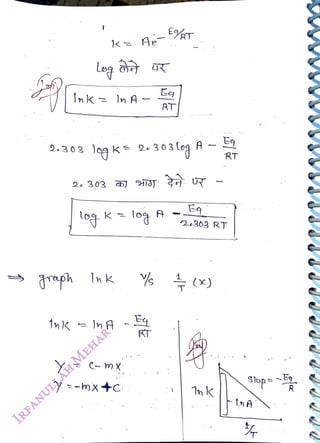 K = Ae^-Ea/RT
Log लेने पर
Imp
lnK = ln A - Ea/RT
2.303 log K = 2.303 log A - Ea/RT
2.303 का भाग देने पर -
log K = log A - Ea/2.303 RT
⇒ graph lnK v/s 1/T (x)
lnK = ln A - Ea/RT
Y = C - mx
Y = -mx + C
Imp
Slop = -Ea/R
lnK
ln A
1/T
IRFANULLAH MEHAR